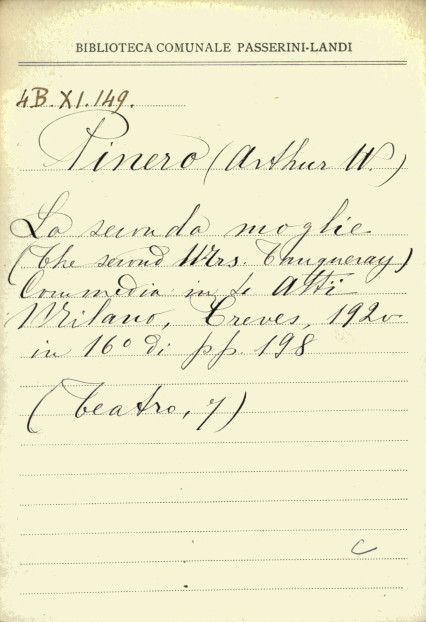 BIBLIOTECA COMUNALE PASSERINI-LANDI
4B.XI.149.
Pinero (Arthur W.)
La seconda moglie
(The second Mrs. Tanqueray)
Commedia in 4 Atti
Milano, Treves, 1920
in 16° di pp. 198
(Teatro, 7)
C